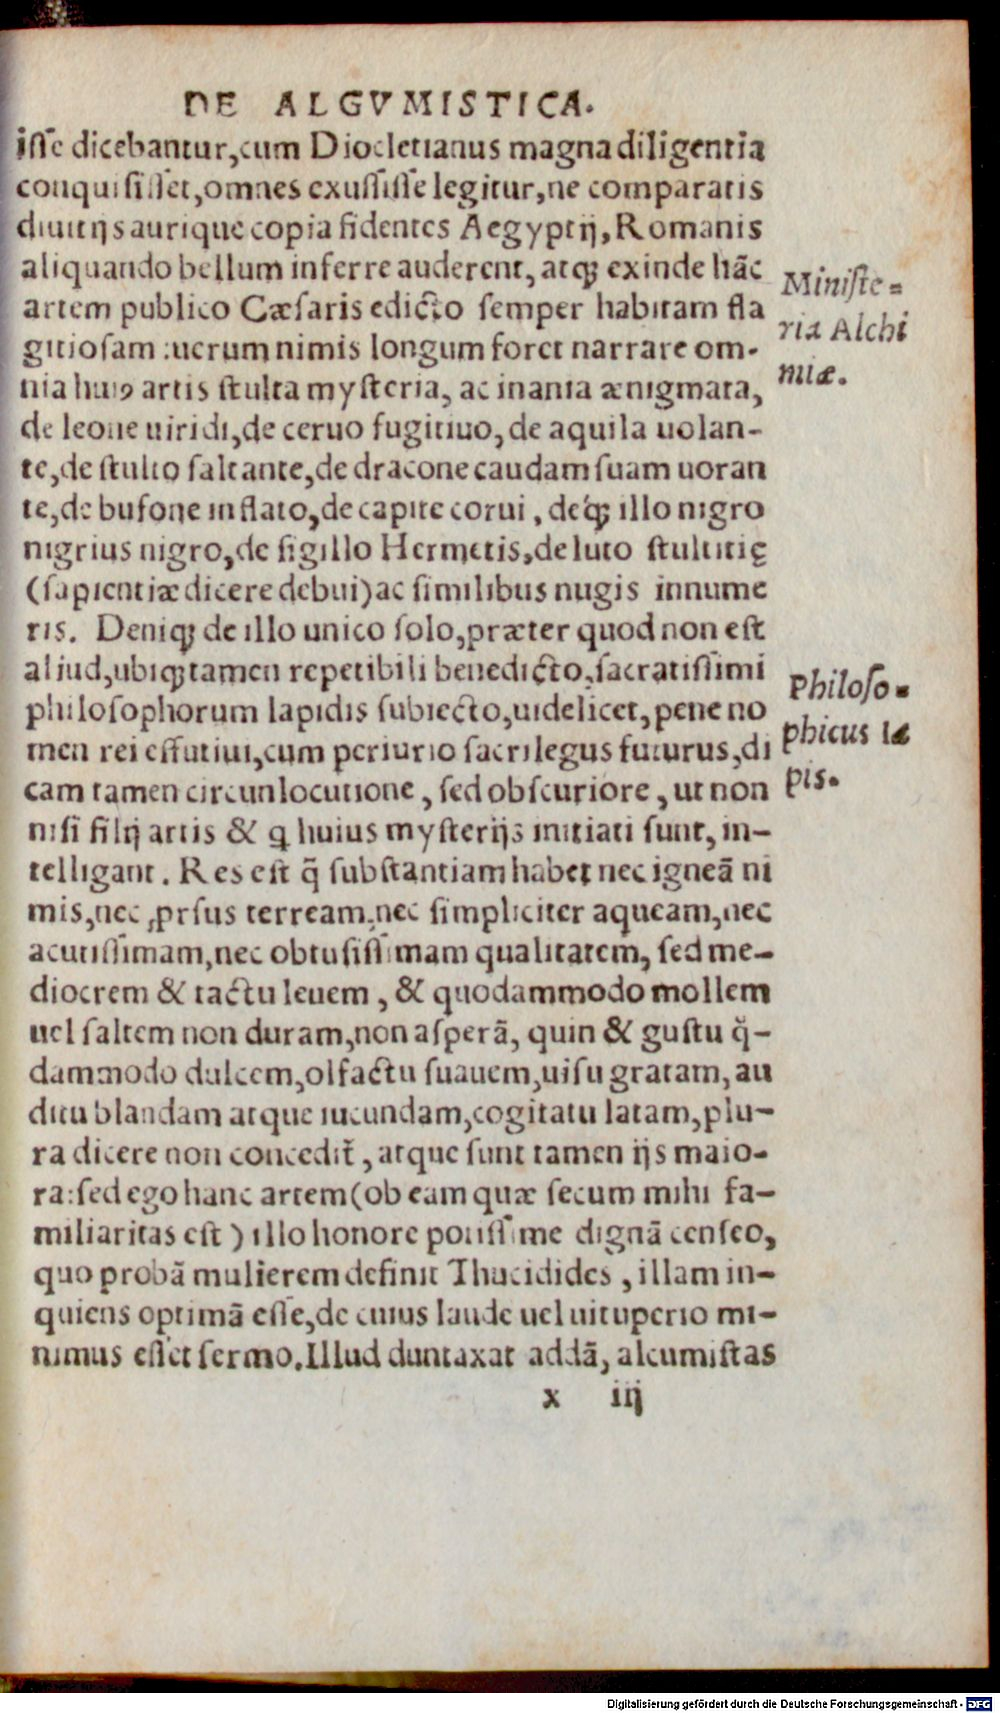 DE ALGVMISTICA.
isse dicebantur, cum Diocletianus magna diligentia
conquisisset, omnes exussisse legitur, ne comparatis
diuitijs aurique copia fidentes Aegyptij, Romanis
aliquando bellum inferre auderent, atqꝫ exinde hãc
artem publico Cæsaris edicto semper habitam fla
gitiosam : uerum nimis longum foret narrare om-
nia huiꝰ artis stulta mysteria, ac inania ænigmata,
de leone uiridi, de ceruo fugitiuo, de aquila uolan-
te, de stulto saltante, de dracone caudam suam uoran
te, de bufone inflato, de capite corui, deq́ꝫ illo nigro
nigrius nigro, de sigillo Hermetis, de luto stultitię
(sapientiæ dicere debui) ac similibus nugis innume
ris. Deniqꝫ de illo unico solo, præter quod non est
aliud, ubiqꝫ tamen repetibili benedicto, sacratissimi
philosophorum lapidis subiecto, uidelicet, pene no
men rei effutiui, cum periurio sacrilegus futurus, di
cam tamen circunlocutione, sed obscuriore, ut non
nisi filij artis & ꝗ huius mysterijs initiati sunt, in-
telligant. Res est q̃ substantiam habet nec igneã ni
mis, nec ꝓrsus terream, nec simpliciter aqueam, nec
acutissimam, nec obtusissimam qualitatem, sed me-
diocrem & tactu leuem, & quodammodo mollem
uel saltem non duram, non asperã, quin & gustu q̃-
dammodo dulcem, olfactu suauem, uisu gratam, au
ditu blandam atque iucundam, cogitatu latam, plu-
ra dicere non concedit̃, atque sunt tamen ijs maio-
ra: sed ego hanc artem (ob eam quæ secum mihi fa-
miliaritas est) illo honore potissime dignã censeo,
quo probã mulierem definit Thucidides, illam in-
quiens optimã esse, de cuius laude uel uituperio mi-
nimus esset sermo. Illud duntaxat addã, alcumistas
x iij
Ministe-
ria Alchi
miæ.
Philoso-
phicus la
pis.
Digitalisierung gefördert durch die Deutsche Forschungsgemeinschaft - DFG